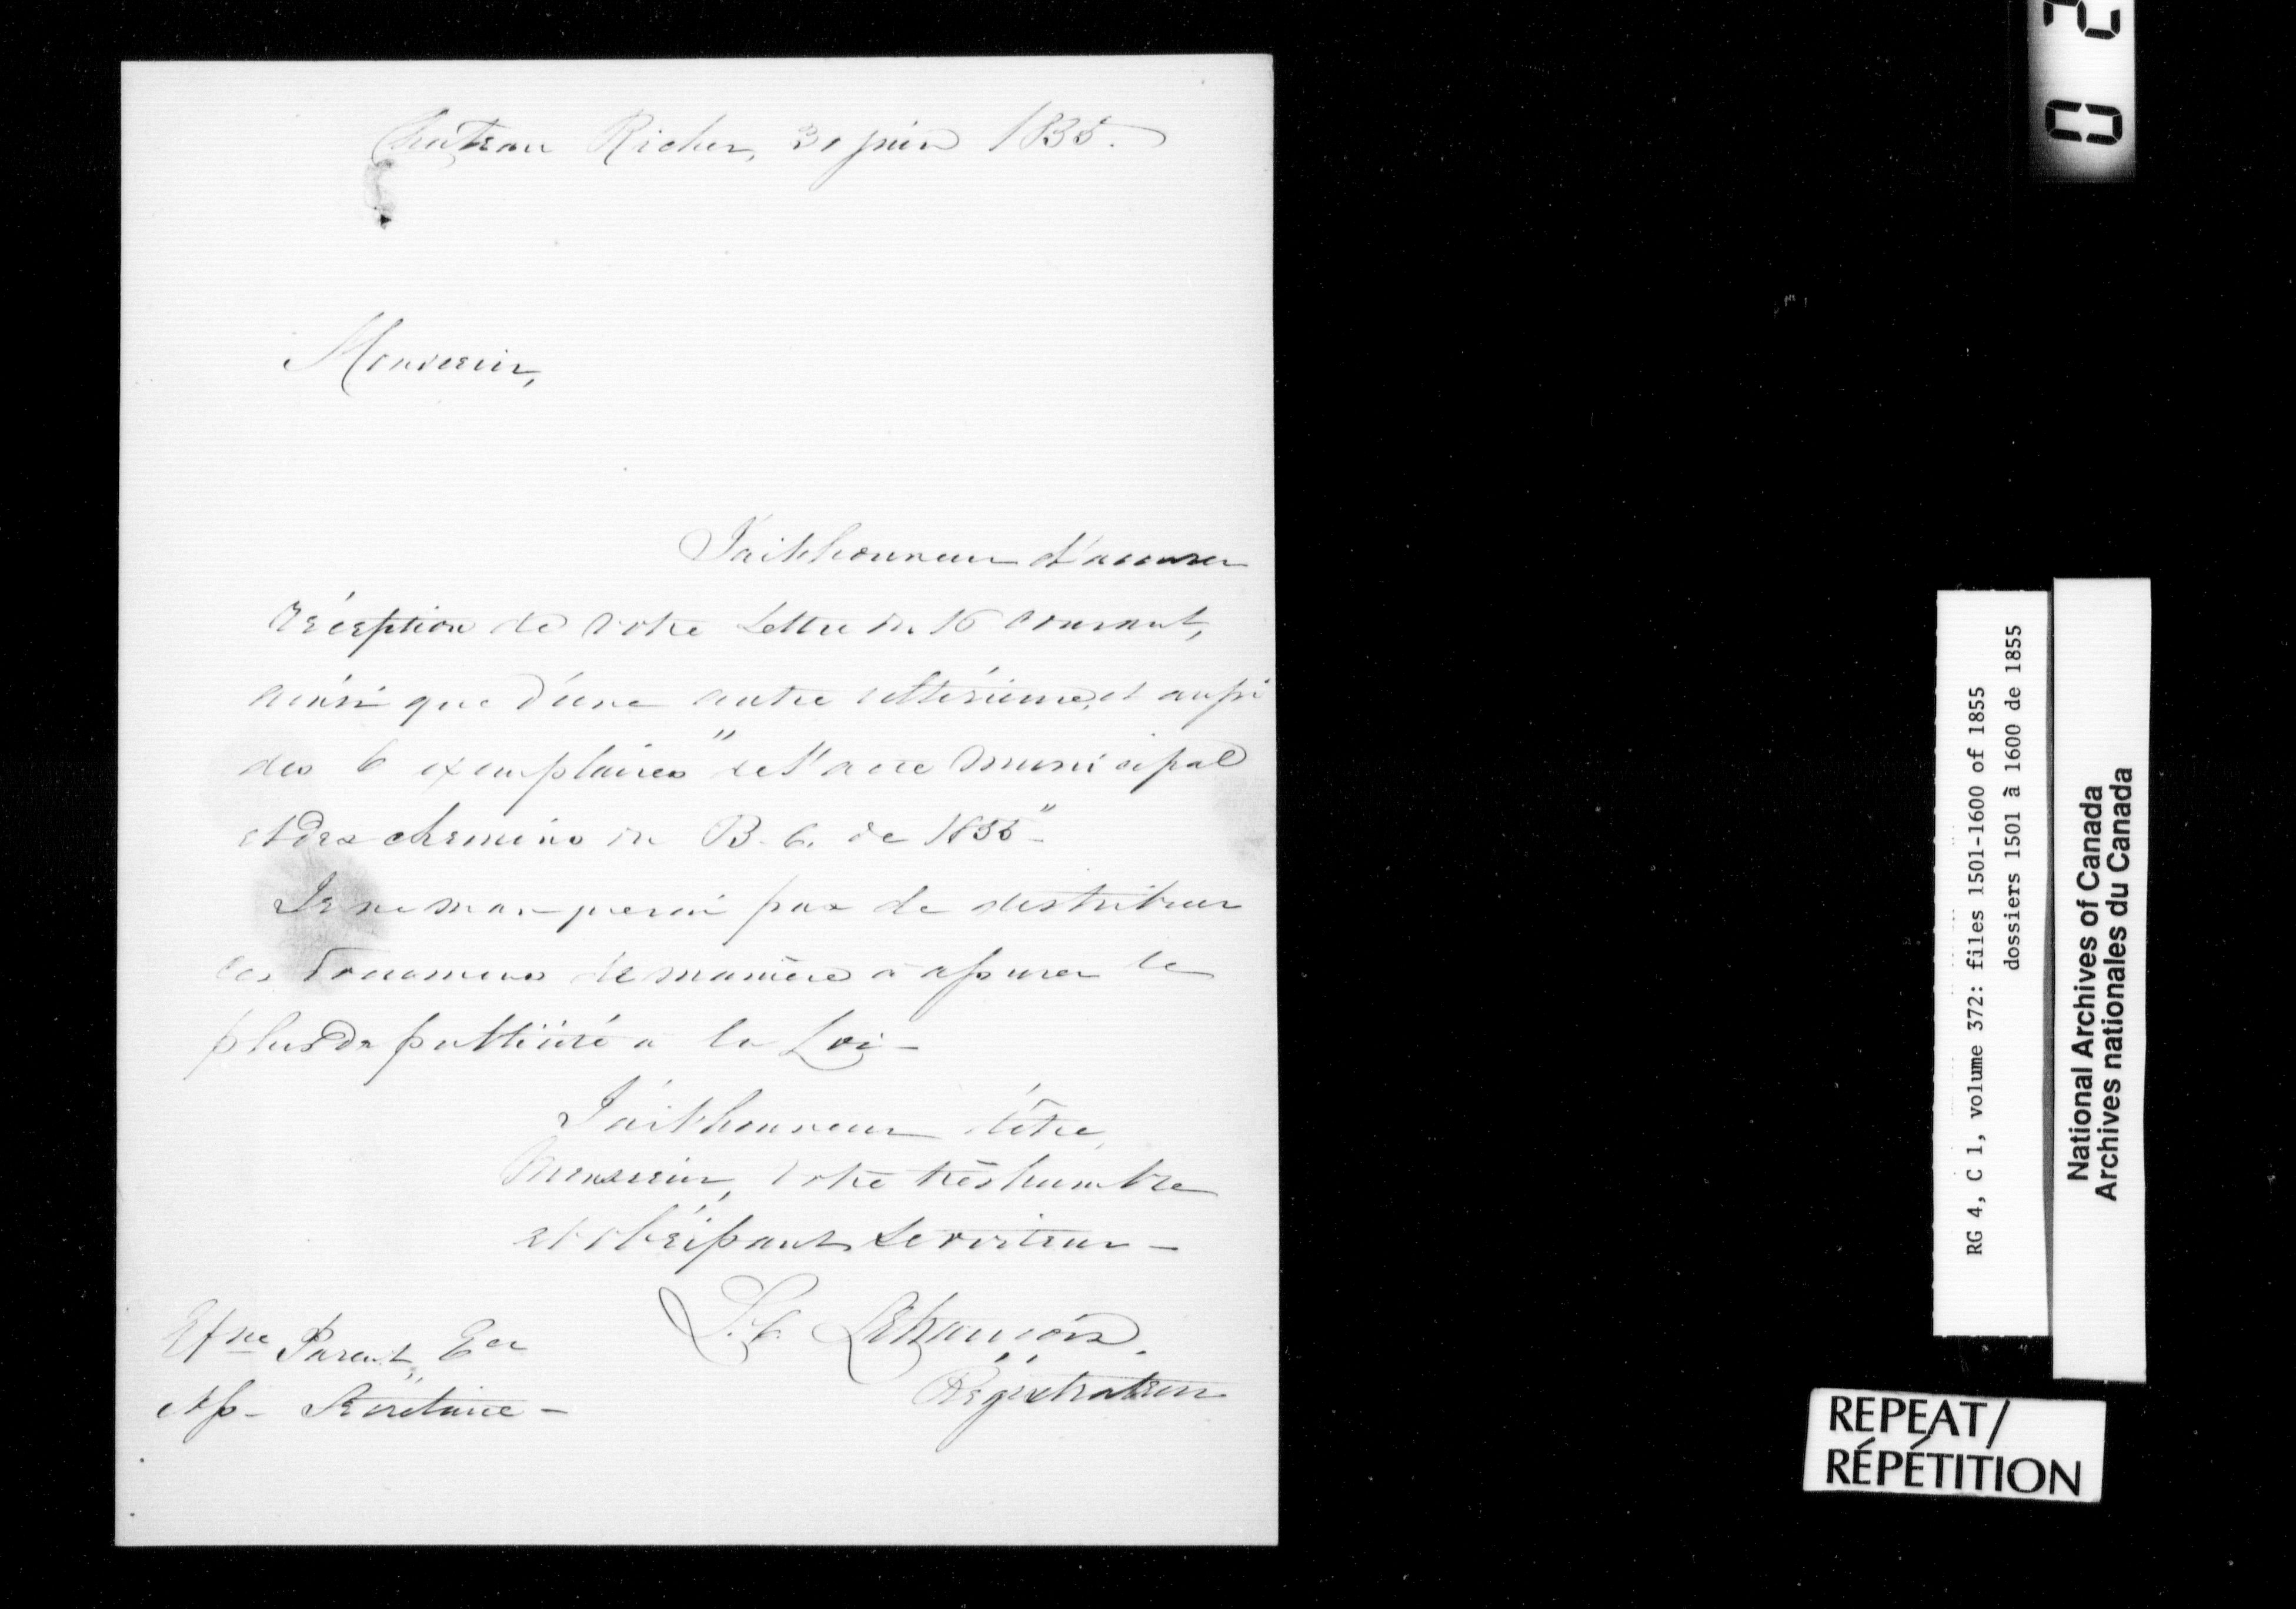 Chateau Richer, 30 juin 1855.
Monsieur,
J'ai l'honneur d'accuser
réception de votre Lettre du 16 courant,
ainsi que d'une autre ultérieure, et aussi
des 6 exemplaires "de l'acte municipal
et des chemins du B. C. de 1855"-
Je ne manquerai pas de distribuer
ces documens de manière à assurer le
plus de publicité à la Loi -
J'ai l'honneur d'être,
Monsieur, votre très humble
et obéissant serviteur -
Registrateur
Etne Parent, Ecr
Ass- Secretaire -
0 2
RG 4, C 1, volume 372: files 1501-1600 of 1855
dossiers 1501 à 1600 de 1855
National Archives of Canada
Archives nationales du Canada
REPEAT/
RÉPÉTITION